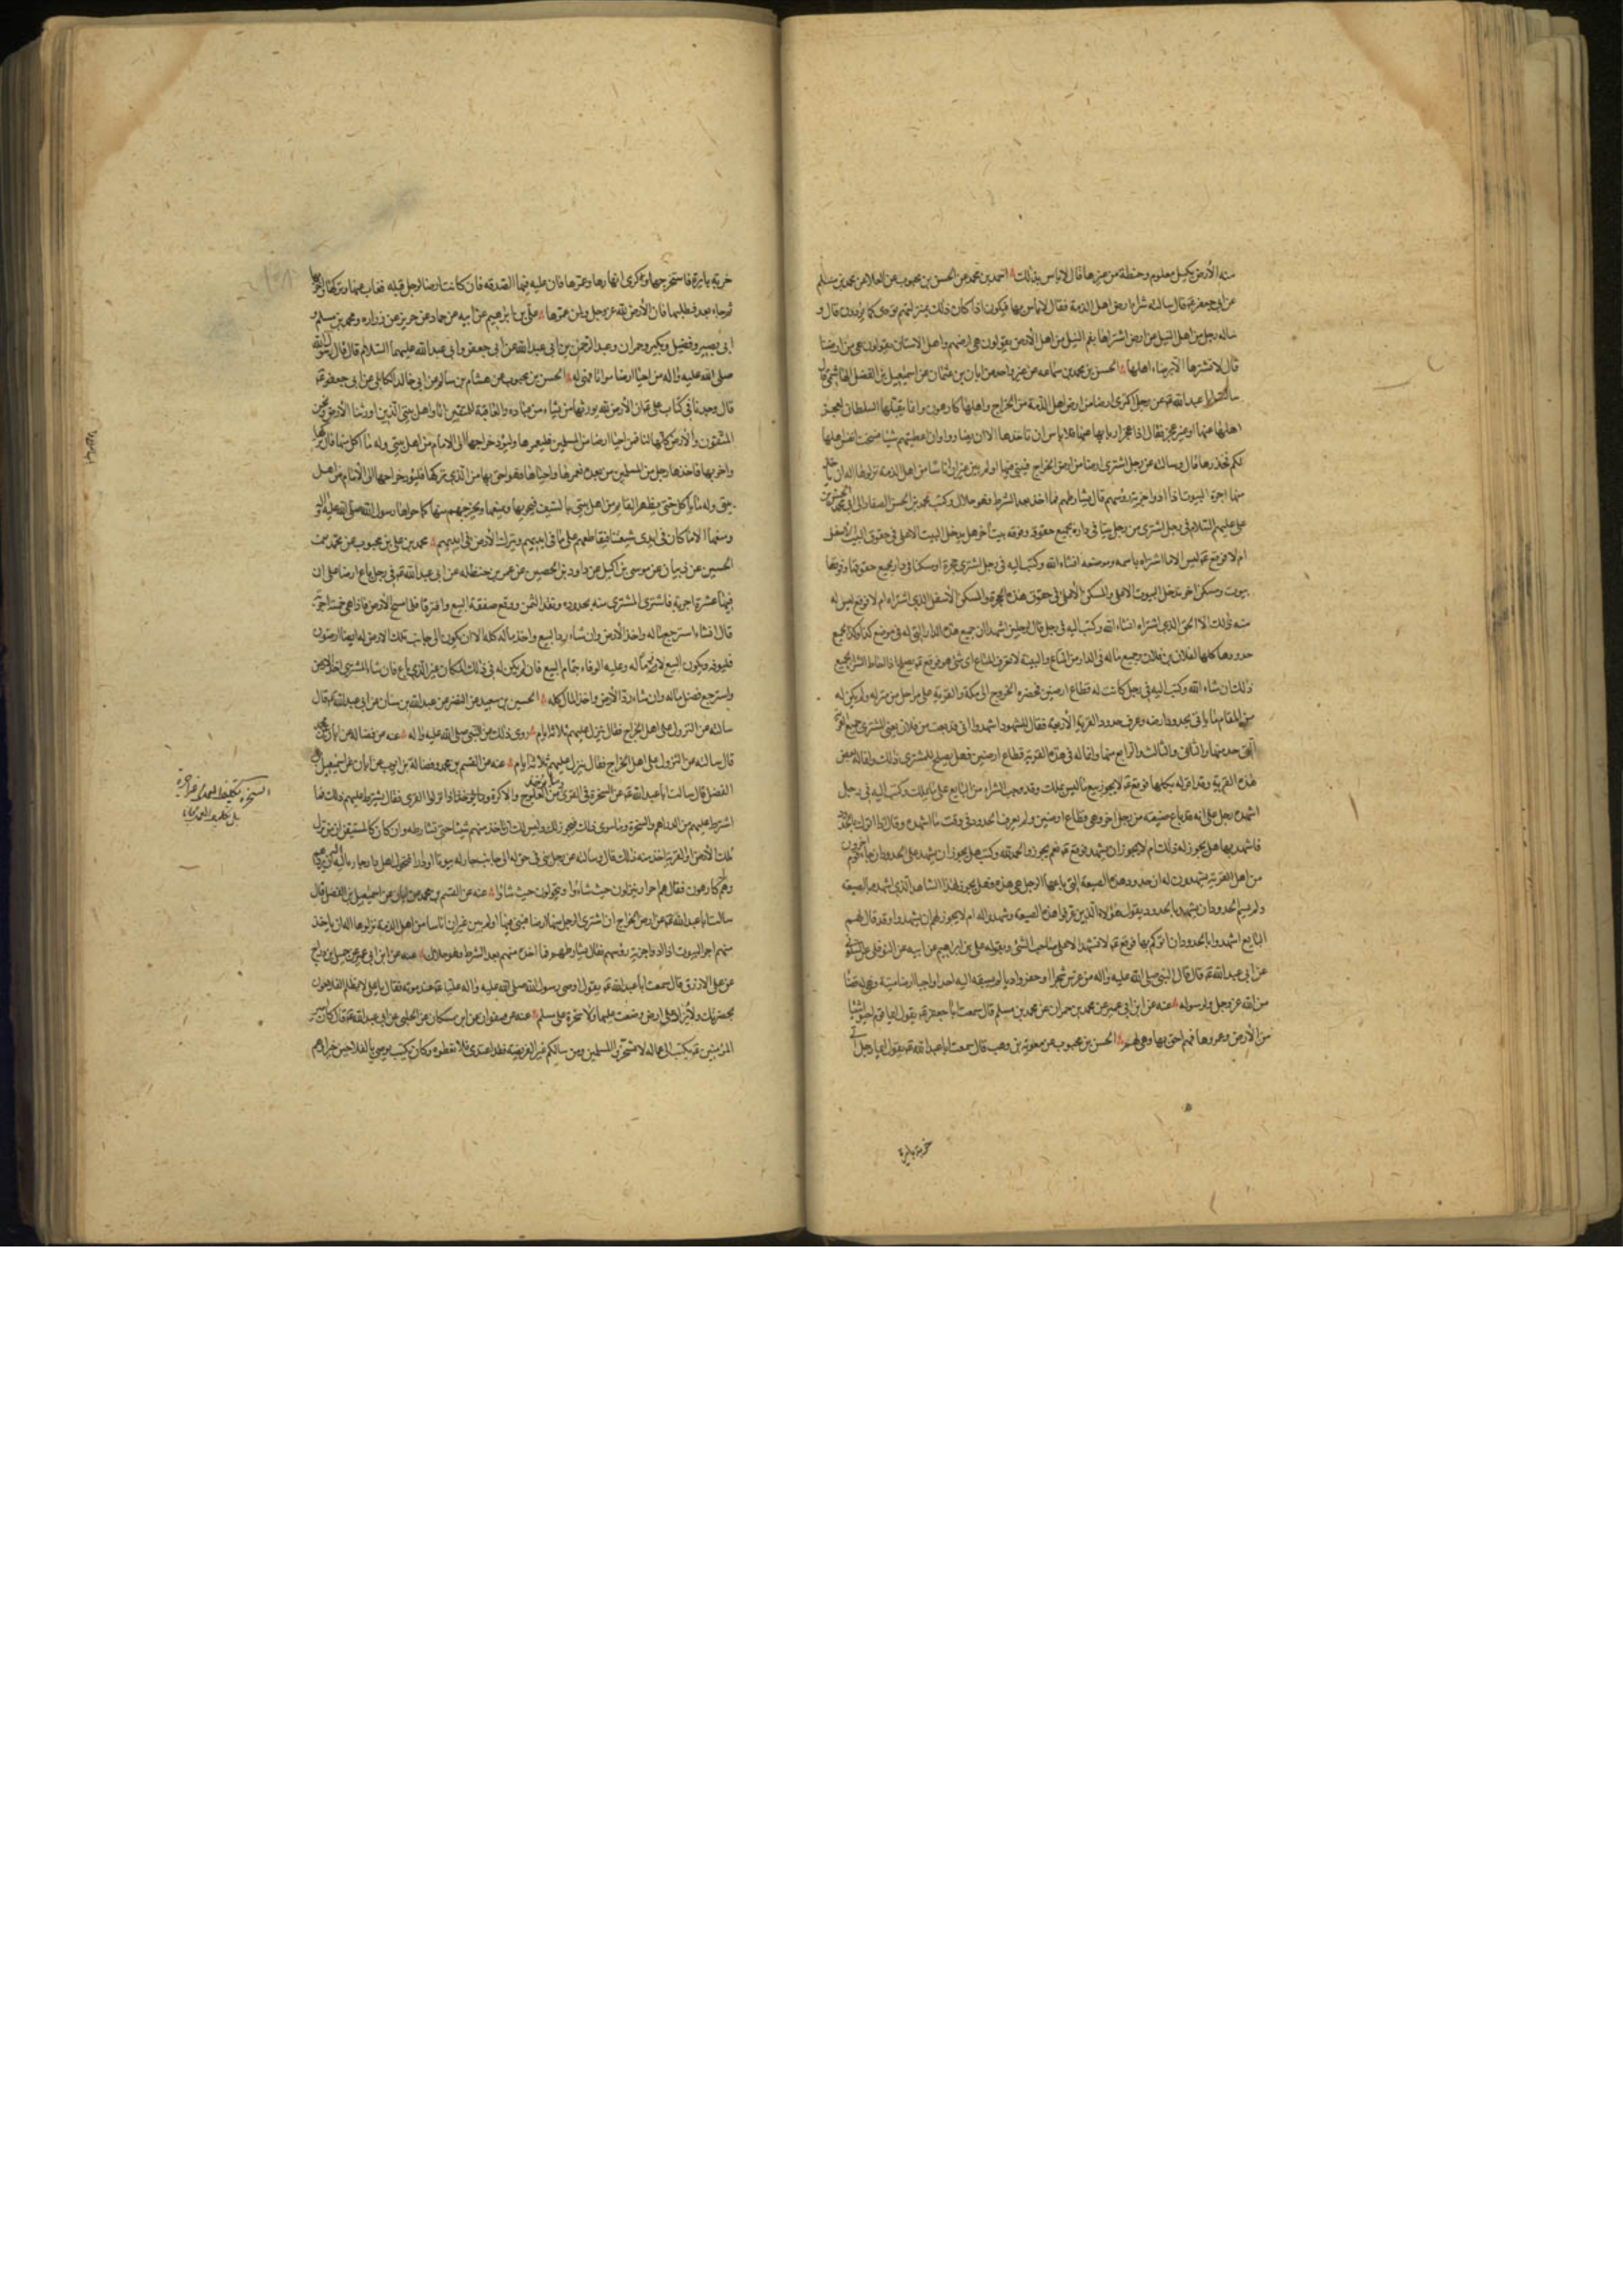 منه الأرض بكيل معلوم وحنطة من غيرها قال لاباس بذلك احمد بن محمد عن الحسن بن محبوب عن العلا عن محمد بن مسلم
عن ابي جعفر ع قال سالته شراء ارض اهل الذمة فقال لاباس بها فيكون اذا كان ذلك بمنزلتهم تؤدى كما يؤدون قال و
ساله رجل من اهل النيل عن ارض اشتراها بفم النيل من اهل الأرض يقولون هى ارضهم واهل الاستان يقولون هى من ارضنا
قال لا تشترها الا برضاء اهلها الحسن بن محمد بن سماعه عن غير واحد عن ابان بن عثمان عن اسمعيل بن الفضل الهاشمى قال
سالت ابا عبد الله ع عن رجل اكترى ارضا من ارض اهل الذمة من الخراج واهلها كارهون وانما يقبلها السلطان لعجز
اهلها عنها او غير عجز فقال اذا عجز اربابها عنها فلا باس ان تاخذها الا ان يضاروا وان اعطيتهم شيئا فسخت انفس اهلها
لكم فخذوها قال وسالته عن رجل اشترى ارضا من ارض الخراج فبنى فيها او لم يبن غير ان اناسا من اهل الذمة نزلوها اله ان ياخذ
منهم اجرة البيوت اذا ادوا جزية رؤسهم قال يشارطهم فما اخذ بعد الشرط فهو حلال وكتب محمد بن الحسن الصفار الى ابى محمد الحسن بن
على عليهم السلام فى رجل اشترى من رجل بيتا فى داره بجميع حقوقه وفوقه بيت آخر هل يدخل البيت الاعلى فى حقوق البيت الأسفل
ام لا فوقع ع ليس له الا ما اشتراه باسمه وموضعه انشاء الله وكتب اليه فى رجل اشترى حجرة او مسكنا فى دار بجميع حقوقها وفوقها
بيوت ومسكن آخر يدخل البيوت الاعلى والمسكن الأعلى فى حقوق هذه الحجرة والمسكن الأسفل الذى اشتراه ام لا فوقع ليس له
منه ذلك الا الحق الذى اشتراه انشاء الله وكتب اليه فى رجل قال لرجلين اشهدا ان جميع هذه الدار التى له فى موضع كذا وكذا بجميع
حدودها كلها لفلان بن فلان وجميع ماله فى الدار من المتاع والبينة لا تعرف المتاع اى شئ هو فوقع ع يصلح اذا احاط الشراء بجميع
ذلك ان شاء الله وكتب اليه فى رجل كانت له قطاع ارضين فحضره الخروج الى مكة والقرية على مراحل من منزله ولم يكن له
من المقام ما ياتى بحدود ارضه وعرف حدود القرية الأربعة فقال للشهود اشهدوا انى قد بعت من فلان يعنى المشترى جميع القرية
التى حد منها والثانى والثالث والرابع منها وانما له فى هذه القرية قطاع ارضين فهل يصلح للمشترى ذلك وانما له بعض
هذه القرية وقد اقر له بكلها فوقع ع لا يجوز بيع ما ليس يملك وقد وجب الشراء من البايع على ما يملك وكتب اليه فى رجل
اشهده رجل على انه قد باع ضيعته من رجل آخر وهى قطاع ارضين ولم يعرف الحدود فى وقت ما اشهده وقال اذا اتوك بالحدود
فاشهد بها هل يجوز له ذلك ام لا يجوز ان يشهد فوقع ع نعم يجوز والحمد لله وكتب هل يجوز ان يشهد على الحدود اذا جاء قوم آخرون
من اهل القرية يشهدون له ان حدود هذه الضيعة التى باعها الرجل هى هذه فهل يجوز لهذا الشاهد الذى اشهده بالضيعة
ولم يسم الحدود ان يشهد بالحدود بقول هؤلاء الذين عرفوا هذه الضيعة وشهدوا له ام لا يجوز لهم ان يشهدوا وقد قال لهم
البايع اشهدوا بالحدود ان اتوكم بها فوقع ع لا تشهد الا على صاحب الشئ وبقوله على بن ابراهيم عن ابيه عن النوفلى عن السكونى
عن ابى عبد الله ع قال قال النبى صلى الله عليه واله من غرس شجرا او حفر واديا لم يسبقه اليه احد او احيا ارضا ميتة فهى له قضاء
من الله عز وجل ورسوله عنه عن ابن ابى عمير عن محمد بن حمران عن محمد بن مسلم قال سمعت ابا جعفر ع يقول ايما قوم احيوا شيئا
من الأرض وعمروها فهم احق بها وهى لهم الحسن بن محبوب عن معوية بن وهب قال سمعت ابا عبد الله ع يقول ايما رجل اتى
خربة بايرة
خربة بايرة فاستخرجها وكرى انهارها وعمرها فان عليه فيها الصدقه فان كانت ارضا لرجل قبله فغاب عنها وتركها فاخربها
ثم جاء بعد فطلبها فان الأرض لله عز وجل ولمن عمرها على بن ابرهيم عن ابيه عن حماد عن حريز عن زراره ومحمد بن مسلم و
ابى بصير وفضيل وبكير وحمران وعبد الرحمن بن ابى عبد الله عن ابى جعفر وابى عبد الله عليهما السلام قال قال رسول الله
صلى الله عليه واله من احيا ارضا مواتا فهى له الحسن بن محبوب عن هشام بن سالم عن ابى خالد الكابلى عن ابى جعفر ع
قال وجدنا فى كتاب على ع ان الأرض لله يورثها من يشاء من عباده والعاقبة للمتقين انا واهل بيتى الذين اورثنا الأرض ونحن
المتقون والأرض كلها لنا فمن احيا ارضا من المسلمين فليعمرها وليؤد خراجها الى الامام من اهل بيتى وله ما اكل منها فان تركها
واخربها فاخذها رجل من المسلمين من بعده فعمرها واحياها فهو احق بها من الذى تركها فليؤد خراجها الى الأمام من اهل
بيتى وله ما ياكل حتى يظهر القايم من اهل بيتى بالسيف فيحويها ويمنعها ويخرجهم منها كما حواها رسول الله صلى الله عليه واله
ومنعها الا ما كان فى ايدى شيعتنا فيقاطعهم على ما فى ايديهم ويترك الأرض فى ايديهم محمد بن على بن محبوب عن محمد بن
الحسين عن ذبيان عن موسى بن اكيل عن داود بن الحصين عن عمر بن حنظله عن ابى عبد الله ع فى رجل باع ارضا على ان
فيها عشرة اجربة فاشترى المشترى منه بحدوده ونقد الثمن ووقع صفقة البيع وافترقا فلما مسح الأرض فاذا هى خمسة اجربة
قال ان شاء استرجع ماله واخذ الأرض وان شاء رد البيع واخذ ماله كله الا ان يكون الى جانب تلك الارض له ايضا ارضون
فليوفه ويكون البيع لازما له وعليه الوفاء بتمام البيع فان لم يكن له فى ذلك المكان غير الذى باع فان شاء المشترى اخذ الأرض
واسترجع فضل ماله وان شاء رد الأرض واخذ المال كله الحسين بن سعيد عن النضر عن عبد الله بن سنان عن ابى عبد الله ع قال
سالته عن النزول على اهل الخراج فقال ينزل عليهم ثلاثة ايام روى ذلك عن النبى صلى الله عليه واله عنه عن فضاله عن ابان عن محمد
قال سالته عن النزول على اهل الخراج فقال ينزل عليهم ثلاثة ايام عنه عن القسم بن محمد وفضالة بن ايوب عن ابان عن اسمعيل بن
الفضل قال سالت ابا عبد الله ع عن السخرة فى القرى وما يؤخذ من العلوج والاكرة اذا نزلوا القرى فقال يشترط عليهم ذلك فما
اشترط عليهم من الدراهم والسخرة وما سوى ذلك فيجوز لك وليس لك ان تاخذ منهم شيئا حتى تشارطه وان كان كالمستيقن ان من نزل
تلك الأرض او القرية اخذ منه ذلك قال وسالته عن رجل بنى فى حق له الى جانب جار له بيوتا او دارا فتحول اهل دار جاره اليه اله ان يردهم
وهم كارهون فقال هم احرار ينزلون حيث شاءوا ويتحولون حيث شاؤا عنه عن القسم بن محمد عن ابان عن اسمعيل بن الفضل قال
سالت ابا عبد الله ع عن ارض الخراج ان اشترى الرجل منها ارضا فبنى فيها او لم يبن غير ان اناسا من اهل الذمة نزلوها اله ان ياخذ
منهم اجر البيوت اذا ادوا جزية رؤسهم فقال يشارطهم فما اخذ منهم بعد الشرط فهو حلال عنه عن ابن ابى عمير عن جميل بن دراج
عن على الازرق قال سمعت ابا عبد الله ع يقول اوصى رسول الله صلى الله عليه واله عليا ع عند موته فقال يا على لا يظلم الفلاحون
بحضرتك ولا يزاد على ارض وضعت عليها ولا سخرة على مسلم عنه عن صفوان عن ابن مسكان عن الحلبى عن ابى عبد الله ع قال كان امير
المؤمنين ع يكتب الى عماله لا تسخروا المسلمين ومن سالكم غير الفريضة فقد اعتدى فلا تعطوه وكان يكتب يوصى بالفلاحين خيرا وهم